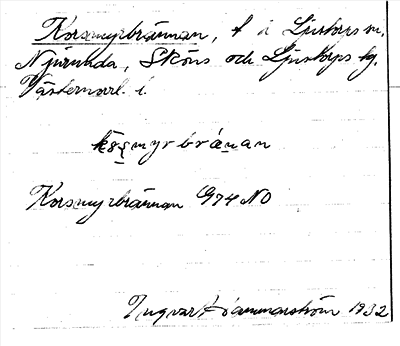 Korsmyrbrännan, t i Ljustorps sn,
Njurunda, Sköns och Ljustorps tg,
Västernorrl. l.
kǫșmyrbránan
Korsmyrbrännan G74 NO
Ingvar Hammarström 1932